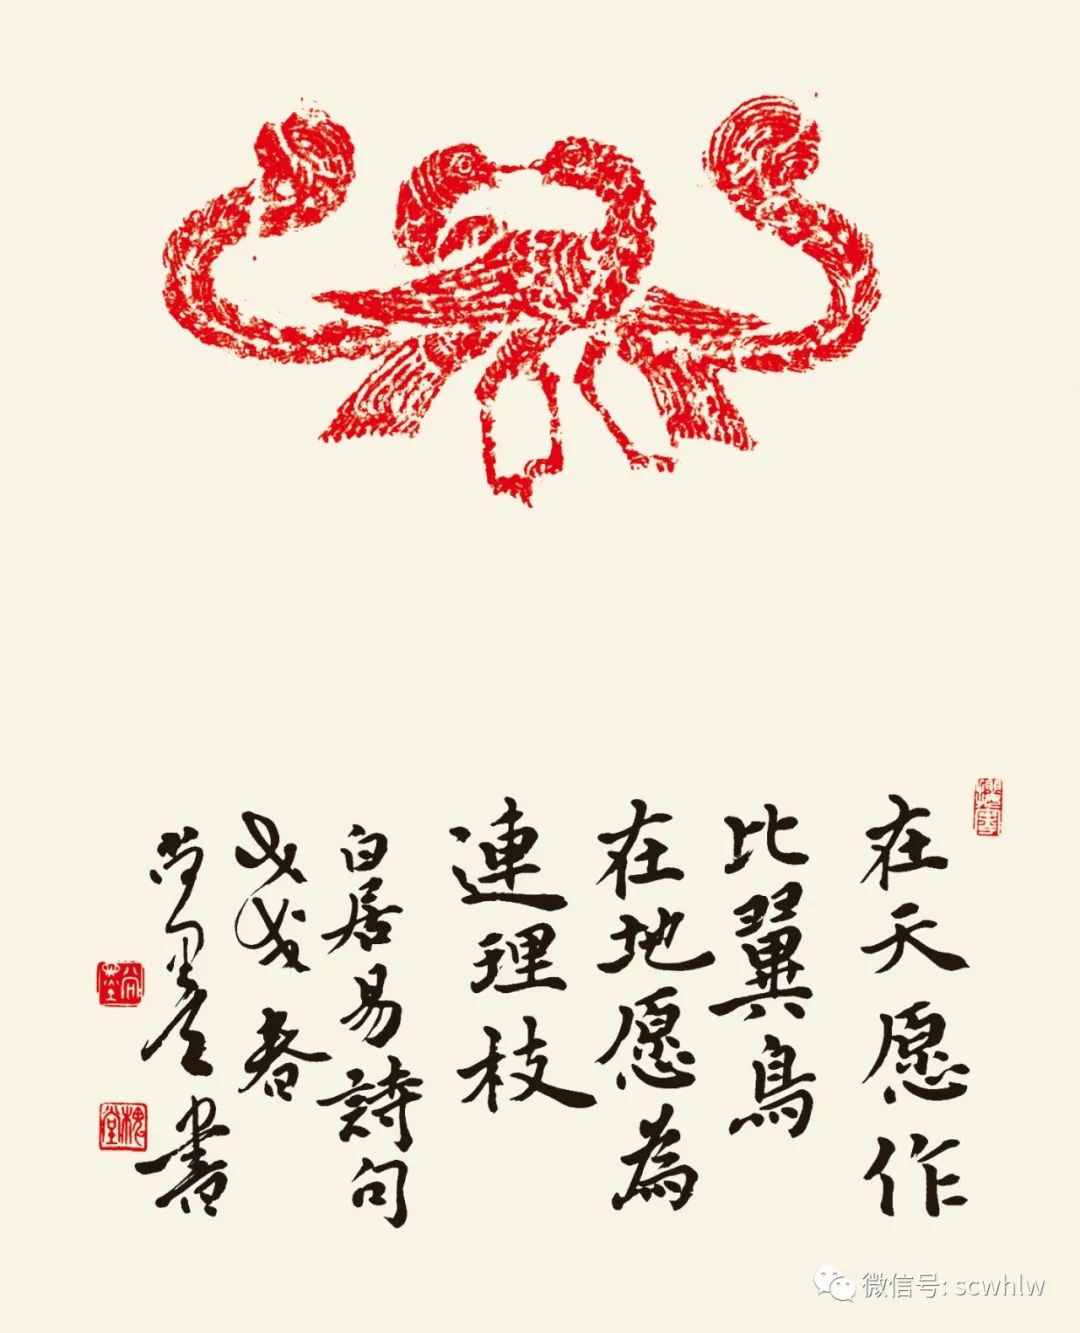 在天愿作
比翼鳥
在地愿為
連理枝
白居易詩句
戊戌春
尚墨書
槐堂
微信号: scwhlw